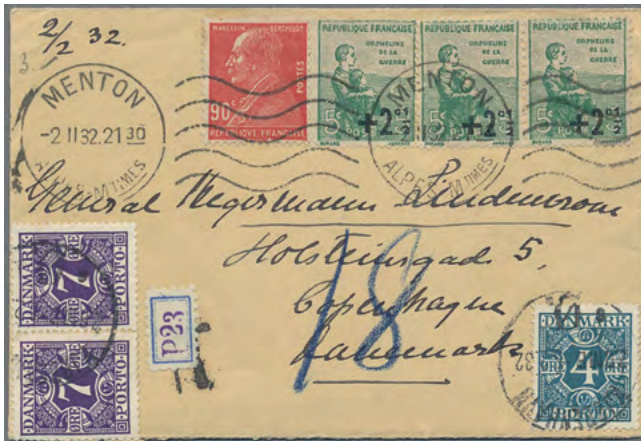 2/2 32.
3
MENTON
-2 II 32. 21 30
MARCELIN BERTHELOT
90c
POSTES
RÉPUBLIQUE FRANÇAISE
RÉPUBLIQUE FRANÇAISE
ORPHELINS
DE LA
GUERRE
5c
+2
POSTES
RÉPUBLIQUE FRANÇAISE
ORPHELINS
DE LA
GUERRE
5c
+2
RÉPUBLIQUE FRANÇAISE
ORPHELINS
DE LA
GUERRE
5c
+2
MENTON
ALPES-MMES
General Wegermann Lindencrone
Holsteinsgade 5,
Copenhague
Danemark
18
DANMARK
7
ØRE
PORTO
DANMARK
7
ØRE
PORTO
P23
DANMARK
ØRE 4 ØRE
PORTO